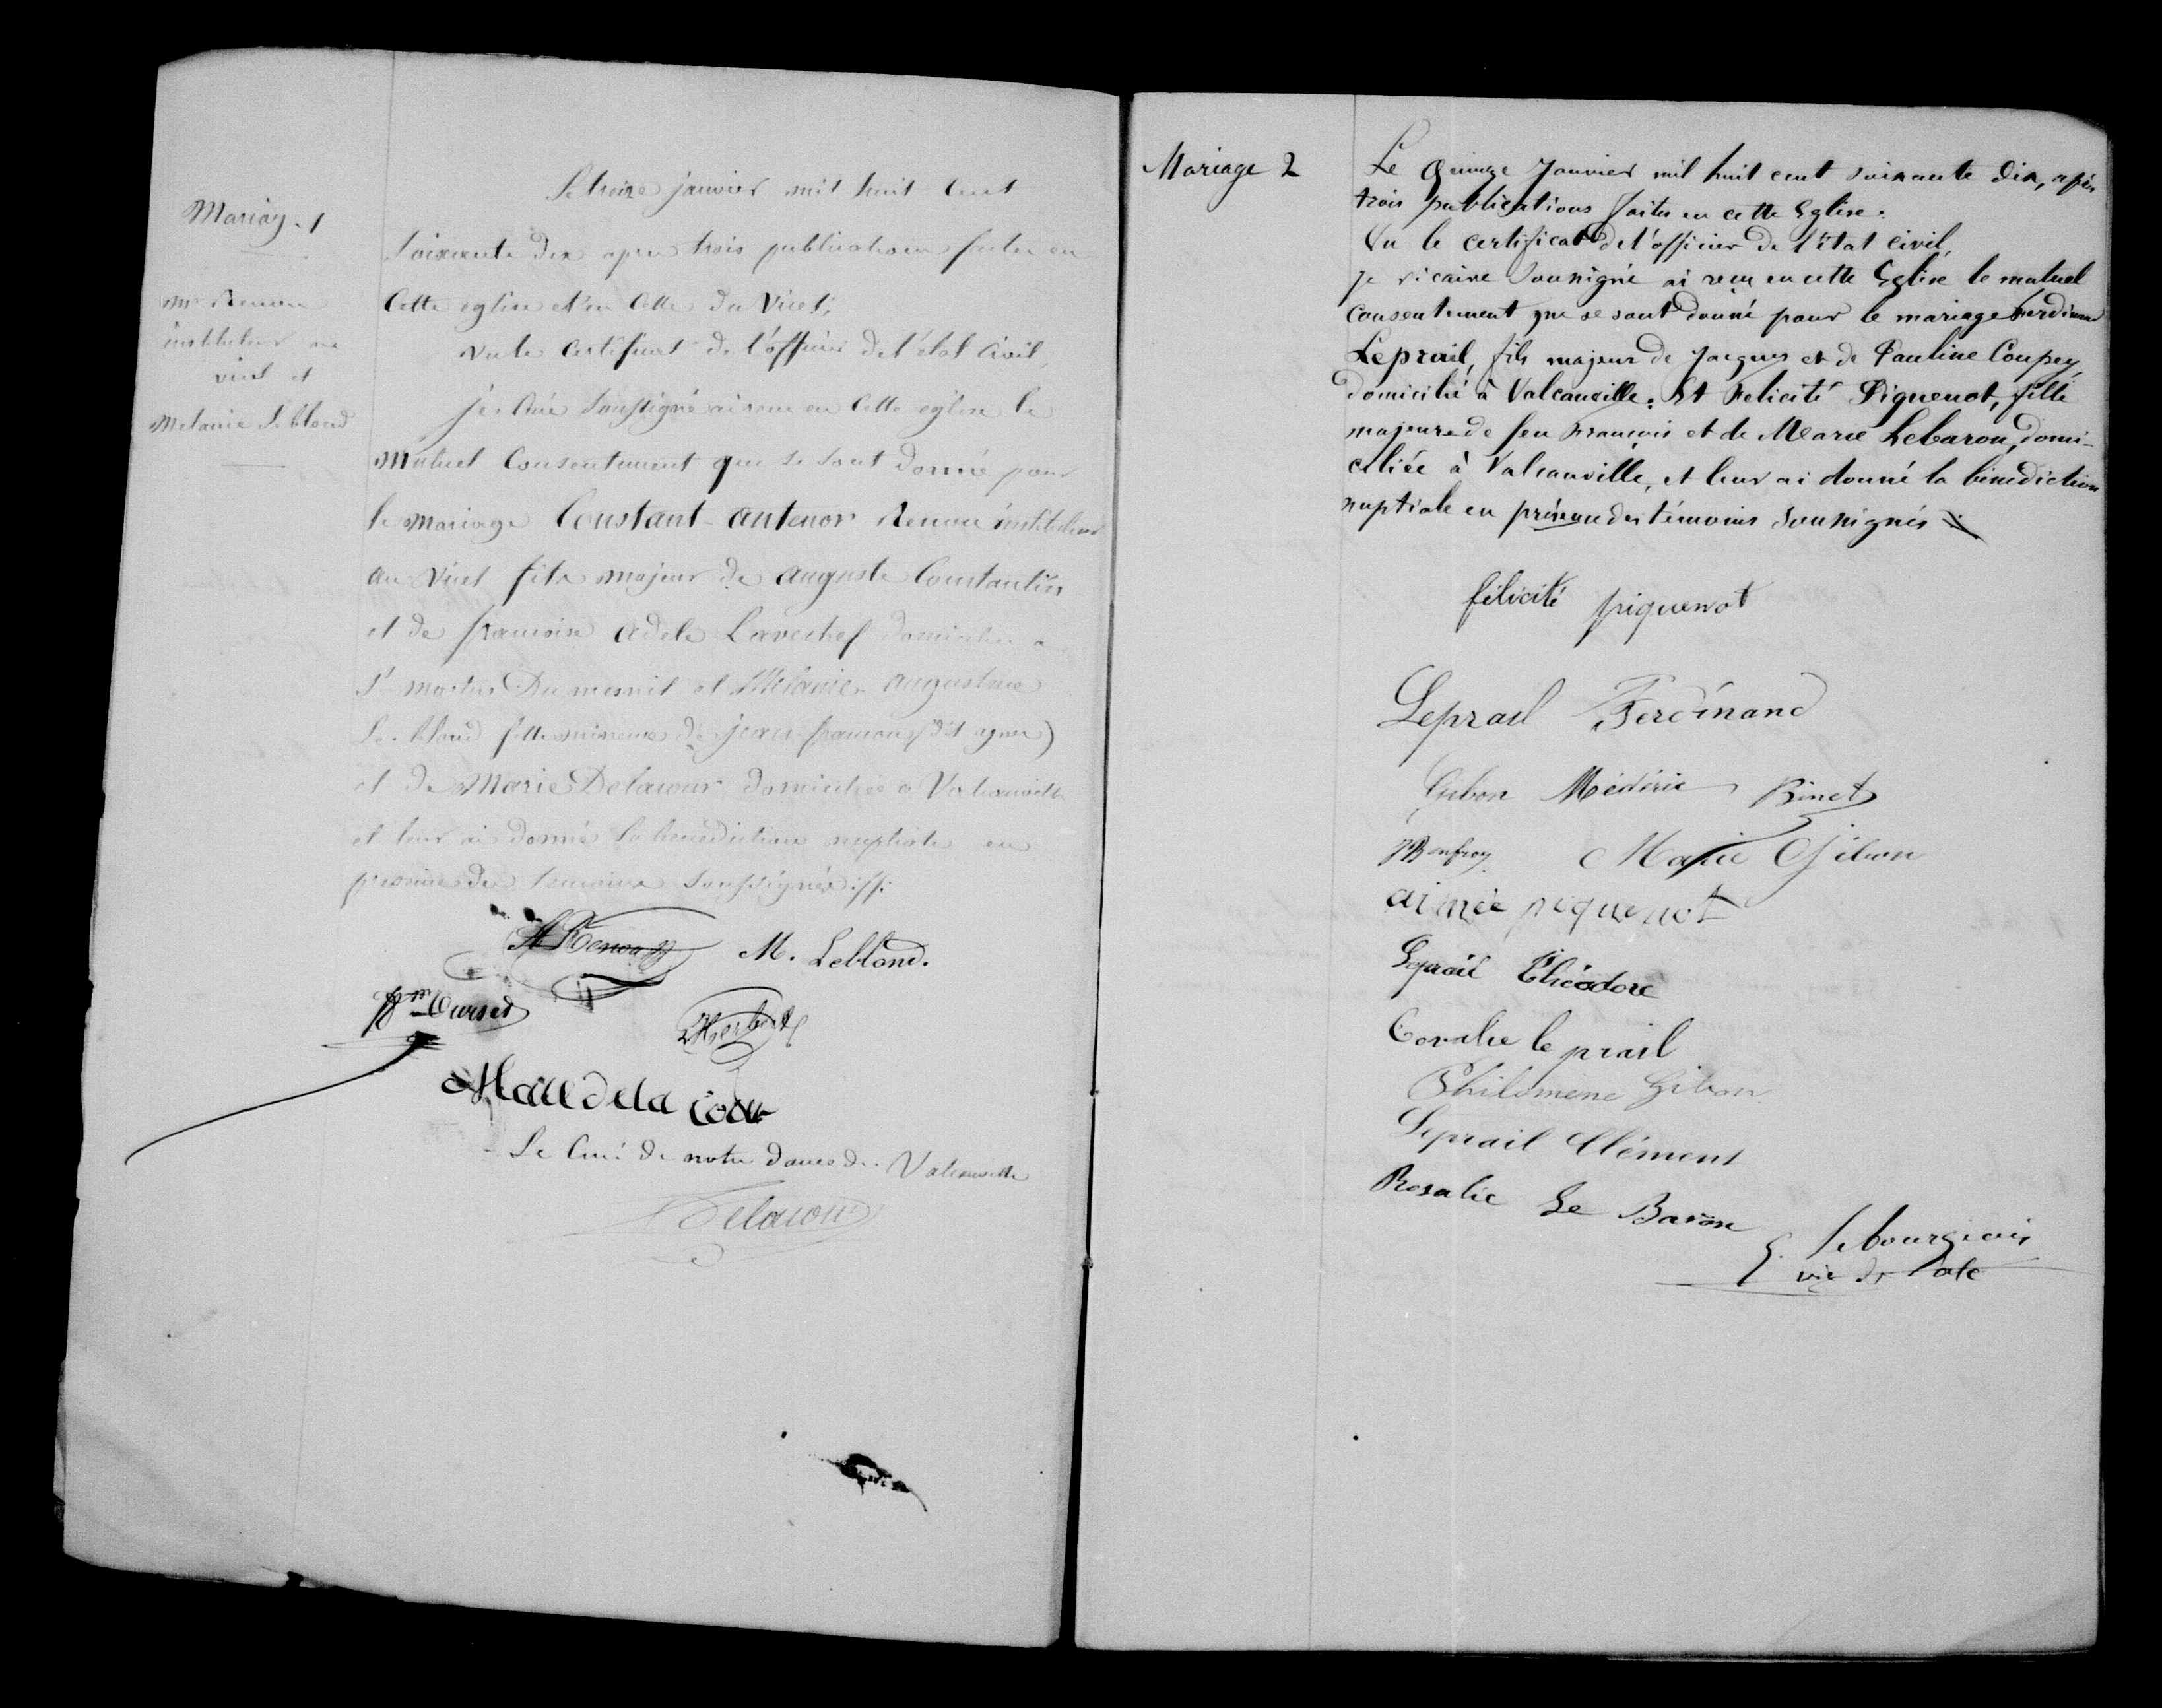 Mariag. 1
Mr Renou
instituteur au
vicel et
Melanie Leblond
Le treize janvier mil huit cent
soixante dix apres trois publications faites en
Cette eglise et en Celle du Vicel,
vu le Certificat de l'officier de l'état Civil,
je Curé soussigné ai recu en Cette eglise le
Mutuel Consentement que se sont donné pour
le mariage Constant-antenor Renou instituteur
au Vicel fils majeur de auguste Constantin
et de francoise adele Lavechef domiciliés a
St martin Du mesnil et Melanie augustine
Le-blond fille mineure de jean francois (dit agnes)
et de Marie Delacour domiciliée a Valcanville
et leur ai donné la benediction nuptiale en
presence des temoins soussignés
A Renou M. Leblond.
Ourset Herbert
delacour
Le Curé de notre dame de Valcanville
Delacour
Mariage 2
Le Quinze Janvier mil huit cent soixante dix, après
trois publications faites en cette Eglise.
Vu le certificat de l'officier de l'état civil,
je vicaire soussigné ai reçu en cette Eglise le mutuel
consentement que se sont donné pour le mariage Ferdinand
Leprail, fils majeur de Jacques et de Pauline Coupey,
domicilié à Valcanville. Et Felicité Piquenot, fille
majeure de feu François et de Marie Lebaron, domi-
ciliée à Valcanville, et leur ai donné la bénédiction
nuptiale en présence des témoins soussignés
félicité piquenot
Leprail Ferdinand
Gibon Médéric Binet
Bonfroy Marie Gibon
aimée piquenot
Leprail Théodore
Coralie le prail
Philomène Gibon
Leprail Clément
Rosalie Le Baron
Lebourgeois
vic